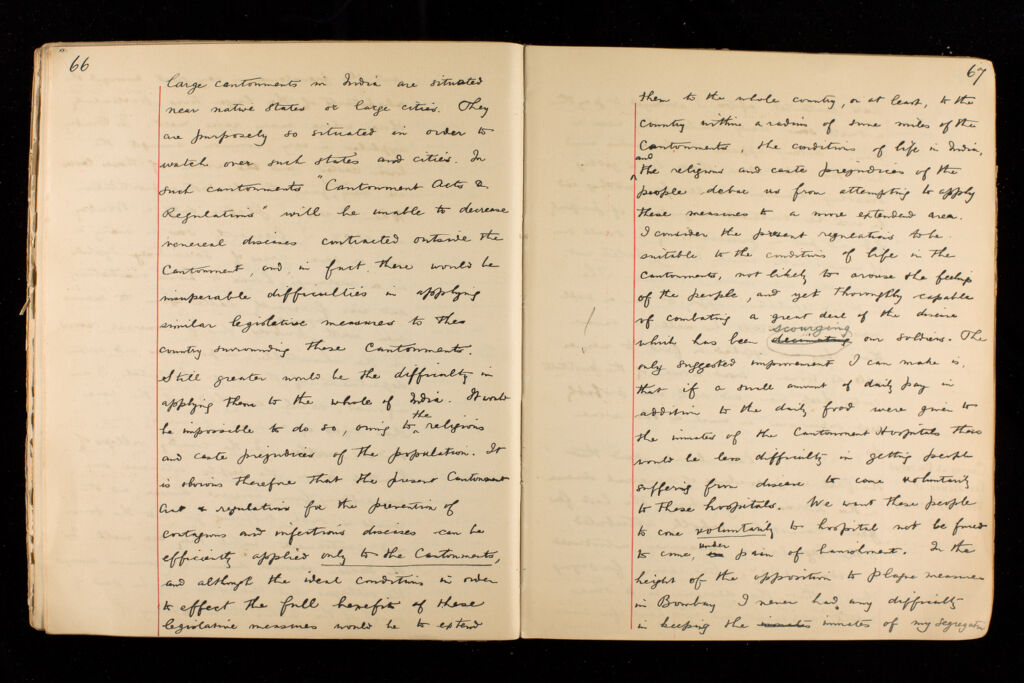 66
large cantonments in India are situated
near native states or large cities. They
are purposely so situated in order to
watch over such states and cities. In
such cantonments "Cantonment Acts &
Regulations" will be unable to decrease
venereal diseases contracted outside the
Cantonment, and, in fact, there would be
insuperable difficulties in applying
similar legislative measures to the
country surrounding these Cantonments.
Still greater would be the difficulty in
applying them to the whole of India. It would
be impossible to do so, owing to the religious
and caste prejudices of the population. It
is obvious therefore that the present Cantonment
Act & regulations for the prevention of
contagious and infectious diseases can be
efficiently applied only to the Cantonments,
and although the ideal conditions in order
to effect the full benefits of these
legislative measures would be to extend
67
them to the whole country, or at least, to the
country within a radius of some miles of the
Cantonments, the conditions of life in India,
and
the religious and caste prejudices of the
people debar us from attempting to apply
these measures to a more extended area.
I consider the present regulations to be
suitable to the conditions of life in the
Cantonments, not likely to arouse the feelings
of the people, and yet thoroughly capable
of combating a great deal of the disease
scourging
which has been decimating our soldiers. The
only suggested improvement I can make is,
that if a small amount of daily pay in
addition to the daily food were given to
the inmates of the Cantonment Hospitals there
would be less difficulty in getting people
suffering from disease to come voluntarily
to these hospitals. We want these people
to come voluntarily to hospital not be forced
to come, under pain of banishment. In the
height of the opposition to plague measures
in Bombay I never had any difficulty
in keeping the inmates inmates of my segregation